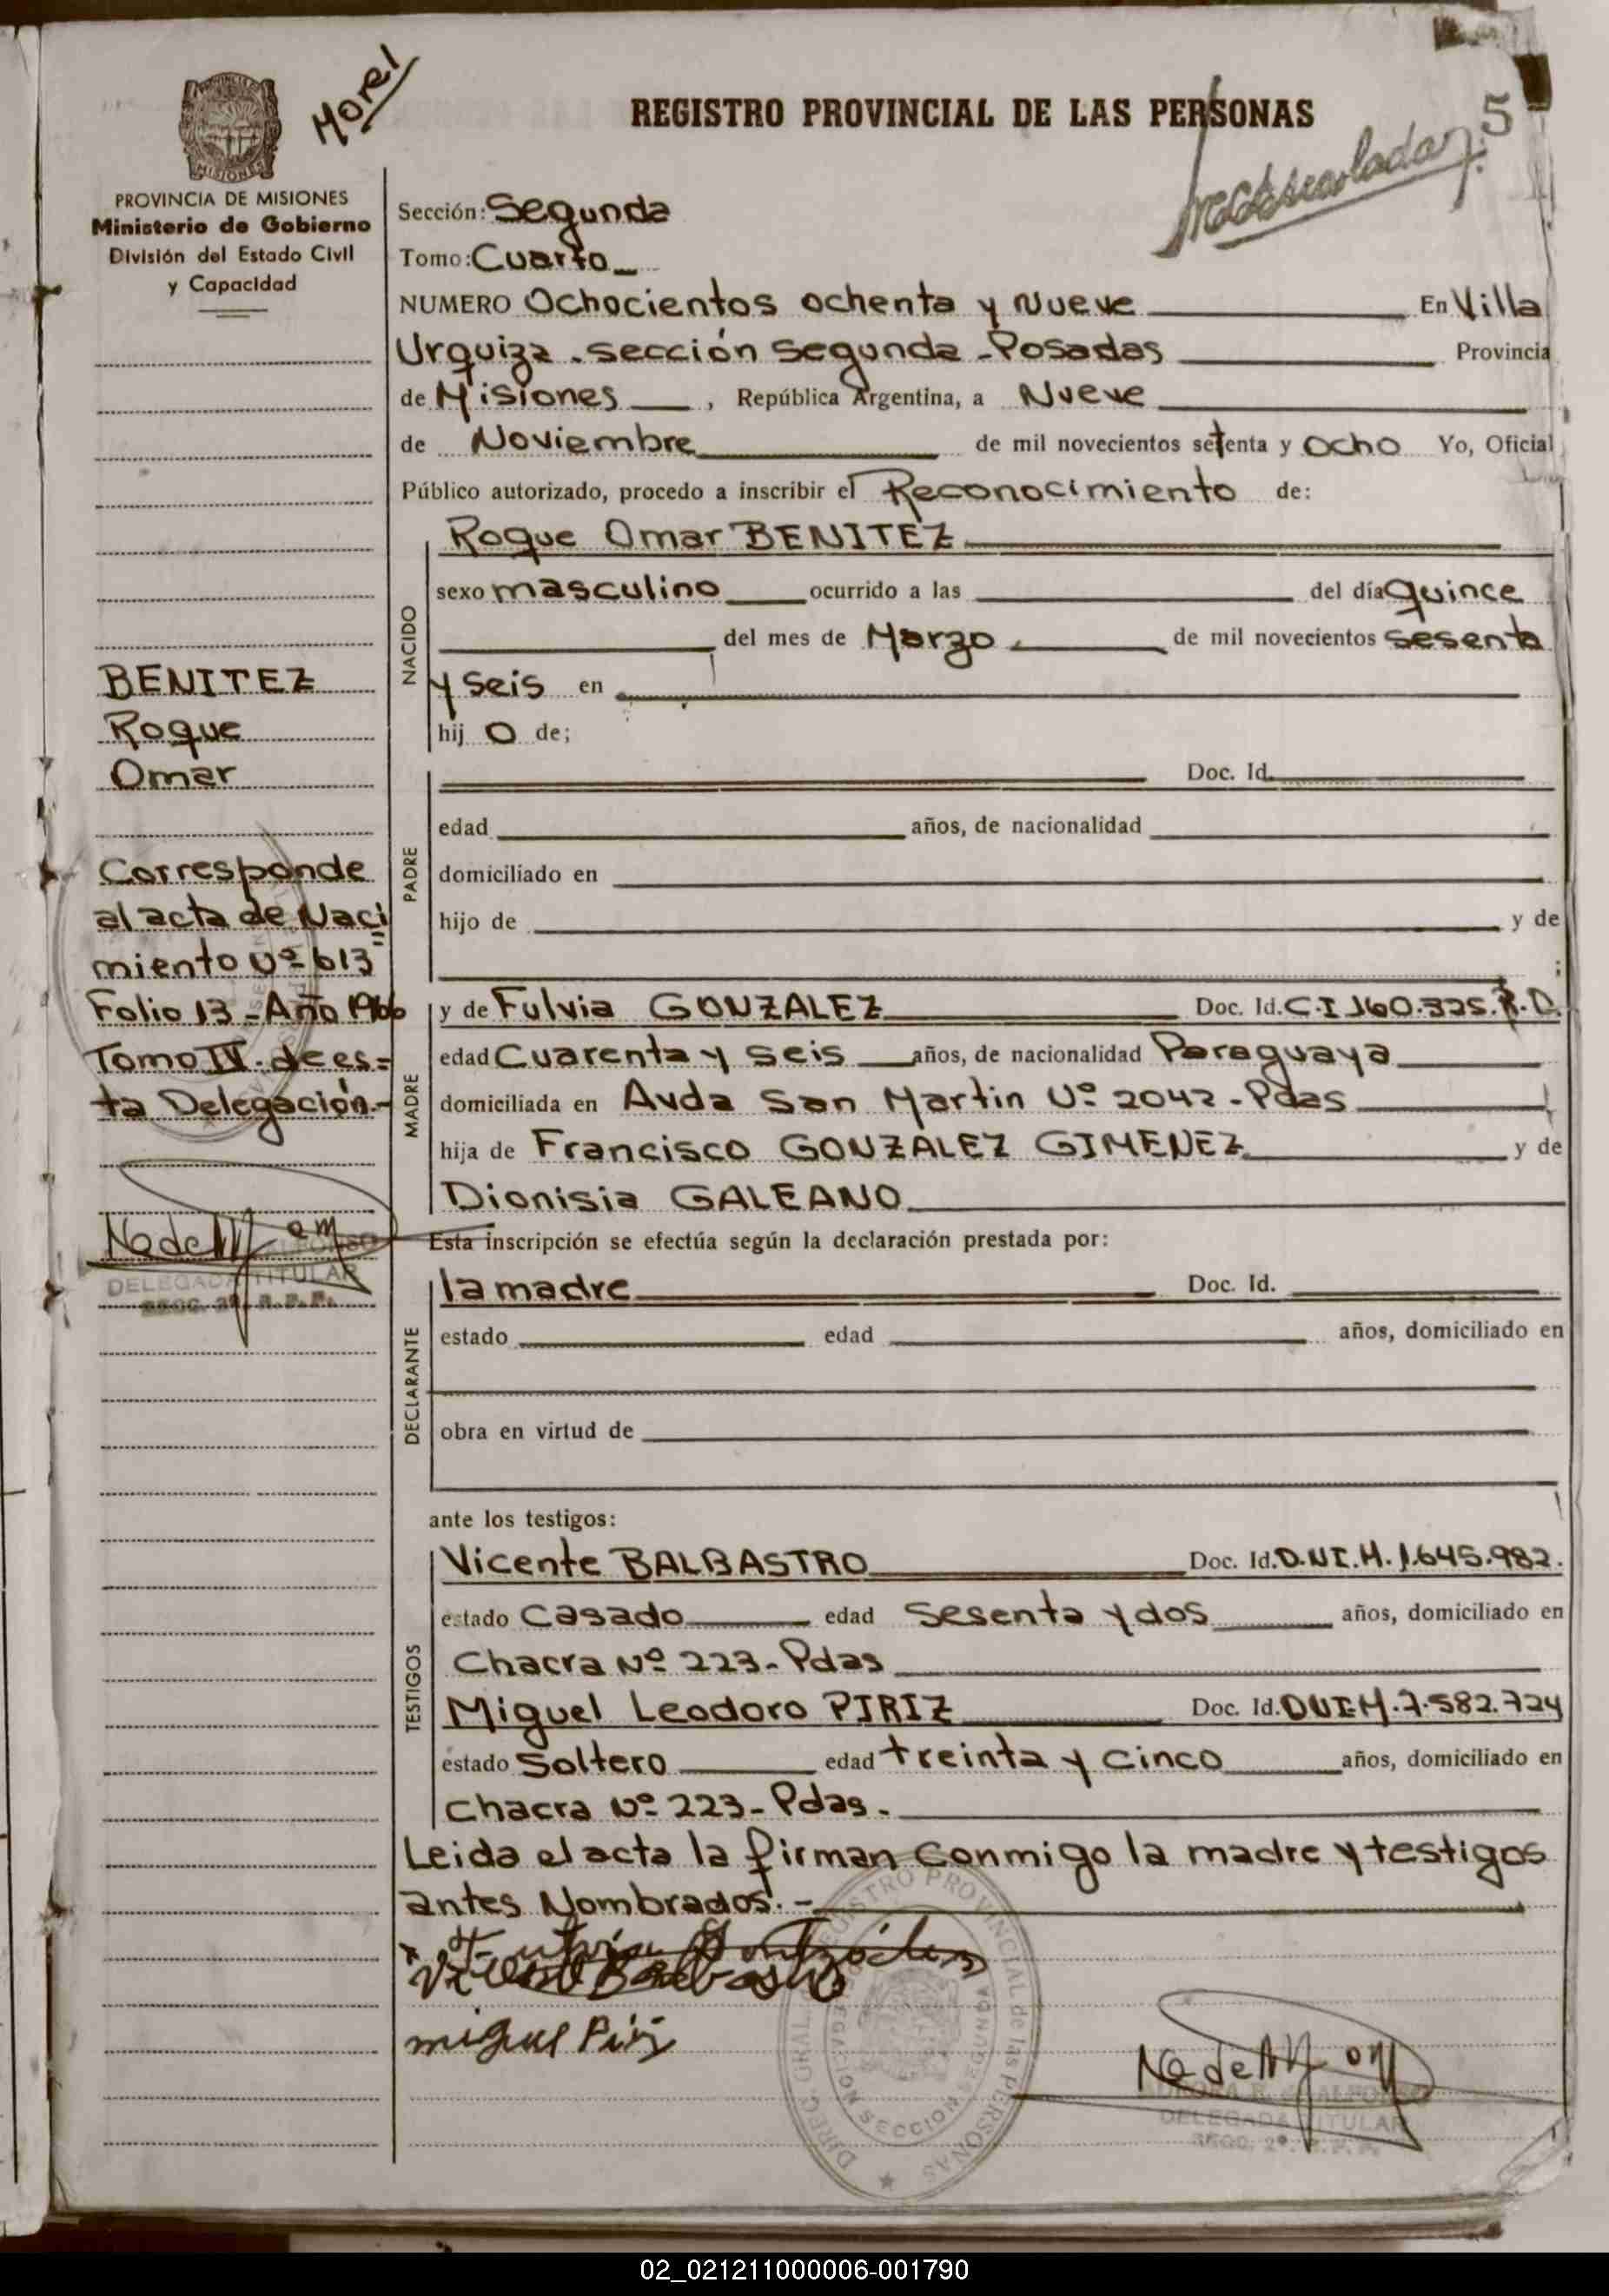 Morel
REGISTRO PROVINCIAL DE LAS PERSONAS
5
PROVINCIA DE MISIONES
Ministerio de Gobierno
División del Estado Civil
y Capacidad
Sección: Segunda
Tomo: Cuarto
NUMERO Ochocientos ochenta y Nueve En Villa
Urquiza. sección segunda - Posadas Provincia
de Misiones, República Argentina, a Nueve
de Noviembre de mil novecientos setenta y ocho Yo, Oficial
Público autorizado, procedo a inscribir el Reconocimiento de:
NACIDO
Roque Omar BENITEZ
sexo masculino ocurrido a las del día quince
del mes de Marzo de mil novecientos sesenta
y seis en
hij o de;
BENITEZ
Roque
Omar
Corresponde
al acta de Naci
miento Nº 613
Folio 13 - Año 1966
Tomo IV. de es=
ta Delegación.-
DELEGADA TITULAR
PADRE
Doc. Id.
edad años, de nacionalidad
domiciliado en
hijo de y de
;
MADRE
y de Fulvia GONZALEZ Doc. Id. C.I 160.325.
edad Cuarenta y seis años, de nacionalidad Paraguaya
domiciliada en Avda San Martin Nº 2042 - Pdas
hija de Francisco GONZALEZ GIMENEZ y de
Dionisia GALEANO
Esta inscripción se efectúa según la declaración prestada por:
DECLARANTE
la madre Doc. Id.
estado edad años, domiciliado en
obra en virtud de
ante los testigos:
TESTIGOS
Vicente BALBASTRO Doc. Id. D.NI.M. 1.645.982.
estado Casado edad Sesenta y dos años, domiciliado en
Chacra Nº 223 - Pdas
Miguel Leodoro PIRIZ Doc. Id. DNI.M. 7.582.724
estado Soltero edad treinta y cinco años, domiciliado en
Chacra Nº 223 - Pdas.
Leida el acta la firman conmigo la madre y testigos
antes Nombrados. -
Vicente Balbastro
miguel Piriz
DIREC. GRAL. REGISTRO PROVINCIAL de las PERSONAS
DELEGACION SECCION SEGUNDA
DELEGADA TITULAR
02_021211000006-001790